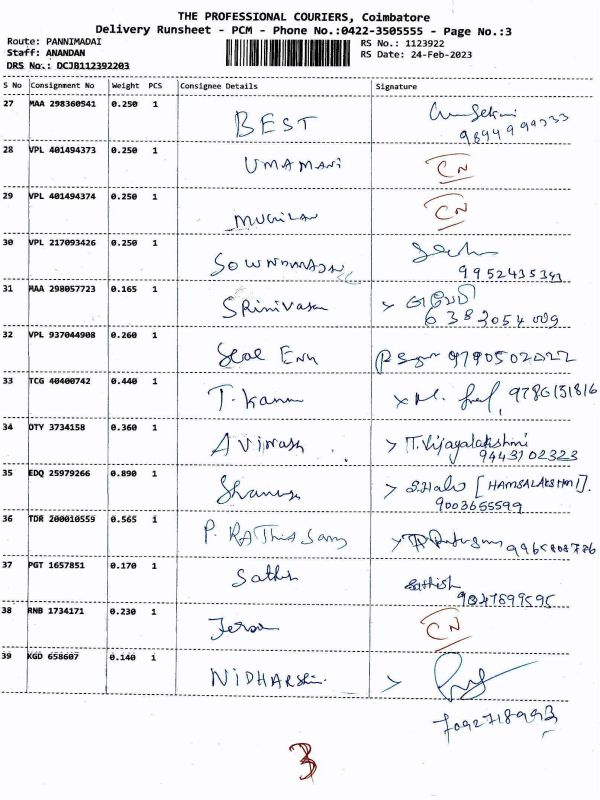 THE PROFESSIONAL COURIERS, Coimbatore
Delivery Runsheet - PCM - Phone No.:0422-3505555 - Page No.:3
Route: PANNIMADAI
Staff: ANANDAN
DRS No.: DCJB112392203
RS No.: 1123922
RS Date: 24-Feb-2023
S No Consignment No Weight PCS Consignee Details Signature
27 MAA 298360541 0.250 1 BEST
28 VPL 401494373 0.250 1 UMAMANi CN
29 VPL 401494374 0.250 1 MUGILAN CN
30 VPL 217093426 0.250 1
9952435343
31 MAA 298057723 0.165 1 SRINIVASAN
32 VPL 937044908 0.260 1 9790502022
33 TCG 40400742 0.440 1 T. Kannan 9786131816
34 OTY 3734158 0.360 1 AVINASH T. Vijayalakshmi
9443102323
35 EDQ 25979266 0.890 1 [HAMSALAKSHMI].
9003655599
36 TDR 200010559 0.565 1 P.
37 PGT 1657851 0.170 1 Sathish Sathish
38 RNB 1734171 0.230 1 CN
39 KGD 658607 0.140 1 NIDHARSHINI
7092718993
3